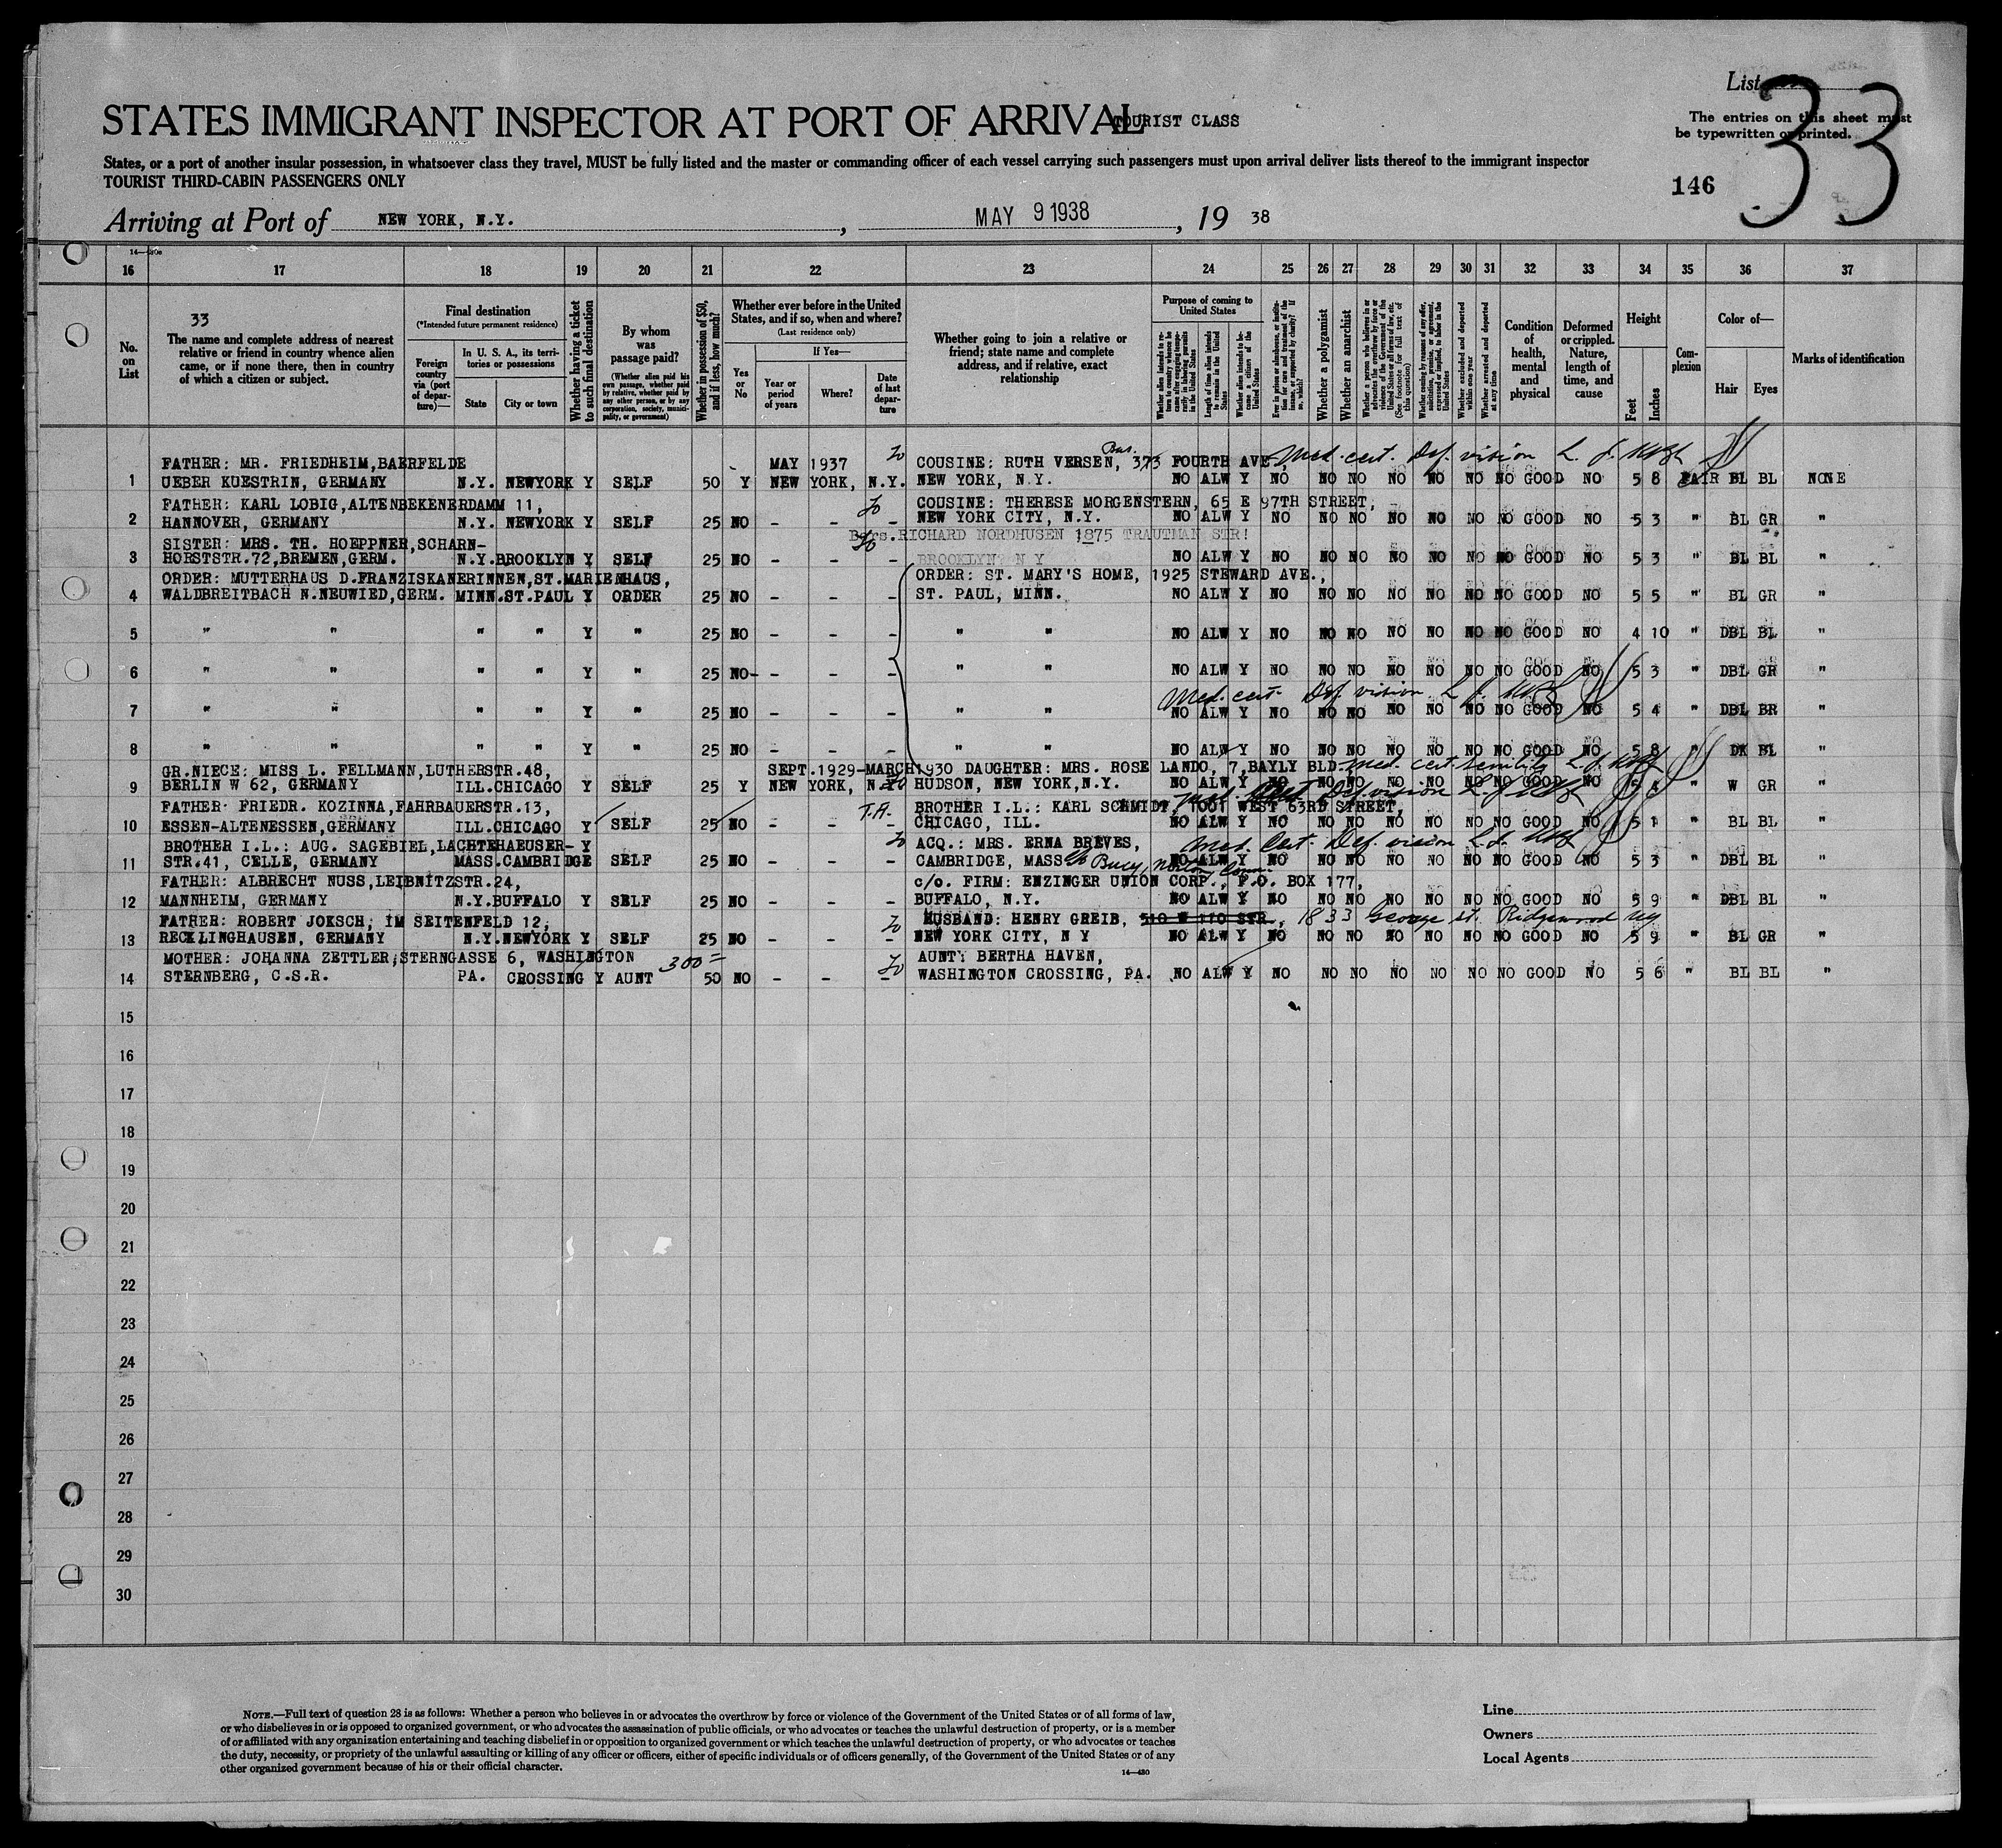 List 33
STATES IMMIGRANT INSPECTOR AT PORT OF ARRIVAL TOURIST CLASS
The entries on this sheet must
be typewritten or printed.
States, or a port of another insular possession, in whatsoever class they travel, MUST be fully listed and the master or commanding officer of each vessel carrying such passengers must upon arrival deliver lists thereof to the immigrant inspector
TOURIST THIRD-CABIN PASSENGERS ONLY
146
Arriving at Port of NEW YORK, N.Y. , MAY 9 1938 , 19 38
16 17 18 19 20 21 22 23 24 25 26 27 28 29 30 31 32 33 34 35 36 37
No. on List
33
The name and complete address of nearest
relative or friend in country whence alien
came, or if none there, then in country
of which a citizen or subject.
Final destination
(*Intended future permanent residence)
Foreign country via (port of departure)—
In U. S. A., its territories or possessions
State
City or town
Whether having a ticket to such final destination
By whom was passage paid?
(Whether alien paid his own passage, whether paid by relative, whether paid by any other person, or by any corporation, society, municipality, or government)
Whether in possession of $50, and if less, how much?
Whether ever before in the United States, and if so, when and where?
(Last residence only)
Yes or No
If Yes—
Year or period of years
Where?
Date of last departure
Whether going to join a relative or
friend; state name and complete
address, and if relative, exact
relationship
Purpose of coming to United States
Whether a polygamist
Whether an anarchist
Condition of health, mental and physical
Deformed or crippled. Nature, length of time, and cause
Height
Feet
Inches
Complexion
Color of—
Hair
Eyes
Marks of identification
FATHER: MR. FRIEDHEIM,BAERFELDE MAY 1937 COUSINE: RUTH VERSEN, 373 FOURTH AVE., Med. cert. Def. vision
1 UEBER KUESTRIN, GERMANY N.Y. NEWYORK Y SELF 50 Y NEW YORK, N.Y. NEW YORK, N.Y. NO ALW Y NO NO NO NO NO NO NO GOOD NO 5 8 FAIR BL BL NONE
FATHER: KARL LOBIG,ALTENBEKENERDAMM 11, COUSINE: THERESE MORGENSTERN, 65 E 97TH STREET,
2 HANNOVER, GERMANY N.Y. NEWYORK Y SELF 25 NO - - - NEW YORK CITY, N.Y. NO ALW Y NO NO NO NO NO NO NO GOOD NO 5 3 " BL GR "
SISTER: MRS. TH. HOEPPNER,SCHARN- RICHARD NORDHUSEN 1875 TRAUTMAN STR!
3 HORSTSTR.72,BREMEN,GERM. N.Y.BROOKLYN Y SELF 25 NO - - - BROOKLYN N Y NO ALW Y NO NO NO NO NO NO NO GOOD NO 5 3 " BL BL "
ORDER: MUTTERHAUS D.FRANZISKANERINNEN,ST.MARIENHAUS, ORDER: ST. MARY'S HOME, 1925 STEWARD AVE.,
4 WALDBREITBACH N.NEUWIED,GERM. MINN.ST.PAUL Y ORDER 25 NO - - - ST. PAUL, MINN. NO ALW Y NO NO NO NO NO NO NO GOOD NO 5 5 " BL GR "
5 " " " " Y " 25 NO - - - " " NO ALW Y NO NO NO NO NO NO NO GOOD NO 4 10 " DBL BL "
6 " " " " Y " 25 NO - - - " " NO ALW Y NO NO NO NO NO NO NO GOOD NO 5 3 " DBL GR "
Med. cert. Def. vision
7 " " " " Y " 25 NO - - - " " NO ALW Y NO NO NO NO NO NO NO GOOD NO 5 4 " DBL BR "
8 " " " " Y " 25 NO - - - " " NO ALW Y NO NO NO NO NO NO NO GOOD NO 5 8 " DK BL "
GR.NIECE: MISS L. FELLMANN,LUTHERSTR.48, SEPT.1929-MARCH1930 DAUGHTER: MRS. ROSE LANDO, 7,BAYLY BLD. Med. cert. senility
9 BERLIN W 62, GERMANY ILL.CHICAGO Y SELF 25 Y NEW YORK, N.Y. HUDSON, NEW YORK,N.Y. NO ALW Y NO NO NO NO NO NO NO GOOD NO 5 4 " W GR "
FATHER: FRIEDR. KOZINNA,FAHRBAUERSTR.13, T.A. BROTHER I.L.: KARL SCHMIDT, 1001 WEST 63RD STREET, Med. Cert. Def. vision
10 ESSEN-ALTENESSEN,GERMANY ILL.CHICAGO Y SELF 25 NO - - - CHICAGO, ILL. NO ALW Y NO NO NO NO NO NO NO GOOD NO 5 1 " BL BL "
BROTHER I.L.: AUG. SAGEBIEL,LACHTEHAEUSER- Y ACQ.: MRS. ERNA BREVES, Med. Cert. Def. vision
11 STR.41, CELLE, GERMANY MASS.CAMBRIDGE SELF 25 NO - - - CAMBRIDGE, MASS NO ALW Y NO NO NO NO NO NO NO GOOD NO 5 3 " DBL BL "
FATHER: ALBRECHT NUSS,LEIBNITZSTR.24, c/o. FIRM: ENZINGER UNION CORP., P.O. BOX 177,
12 MANNHEIM, GERMANY N.Y.BUFFALO Y SELF 25 NO - - - BUFFALO, N.Y. NO ALW Y NO NO NO NO NO NO NO GOOD NO 5 9 " DBL BL "
FATHER: ROBERT JOKSCH, IM SEITENFELD 12, HUSBAND: HENRY GREIB, 510 W 170 STR., 1833 George st. Ridgewood ny
13 RECKLINGHAUSEN, GERMANY N.Y.NEWYORK Y SELF 25 NO - - - NEW YORK CITY, N Y NO ALW Y NO NO NO NO NO NO NO GOOD NO 5 9 " BL GR "
MOTHER: JOHANNA ZETTLER,STERNGASSE 6, WASHINGTON 300= AUNT: BERTHA HAVEN,
14 STERNBERG, C.S.R. PA. CROSSING Y AUNT 50 NO - - - WASHINGTON CROSSING, PA. NO ALW Y NO NO NO NO NO NO NO GOOD NO 5 6 " BL BL "
15
16
17
18
19
20
21
22
23
24
25
26
27
28
29
30
NOTE.—Full text of question 28 is as follows: Whether a person who believes in or advocates the overthrow by force or violence of the Government of the United States or of all forms of law,
or who disbelieves in or is opposed to organized government, or who advocates the assassination of public officials, or who advocates or teaches the unlawful destruction of property, or is a member
of or affiliated with any organization entertaining and teaching disbelief in or opposition to organized government or which teaches the unlawful destruction of property, or who advocates or teaches
the duty, necessity, or propriety of the unlawful assaulting or killing of any officer or officers, either of specific individuals or of officers generally, of the Government of the United States or of any
other organized government because of his or their official character.
14—430
Line
Owners
Local Agents